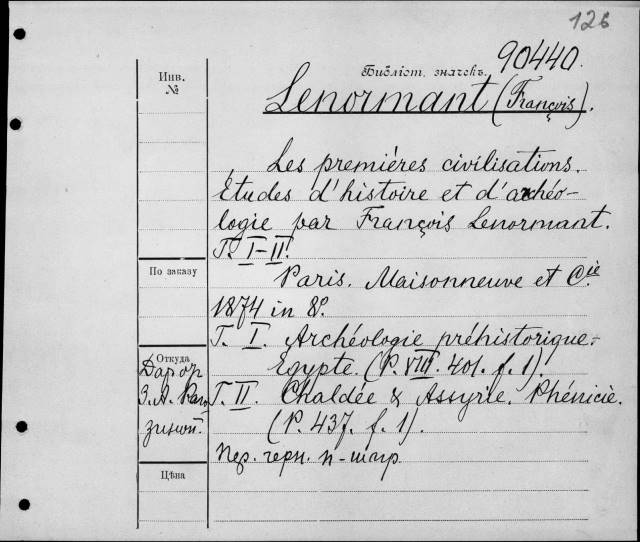 126
90440.
Библіот. значекъ.
Инв.
№
Lenormant (François).
Les premières civilisations.
Études d'histoire et d'archéo-
logie par François Lenormant.
T. I-II.
По заказу
Paris. Maisonneuve et Cie.
1874 in 8º.
T. I. Archéologie préhistorique.-
Egypte. (P. VIII. 401. f. 1).
Откуда
Дар от
З. А. Раго
зиной.
T. II. Chaldée & Assyrie. Phénicie.
(P. 437. f. 1).
Пер. черн. п-шагр.
Цѣна